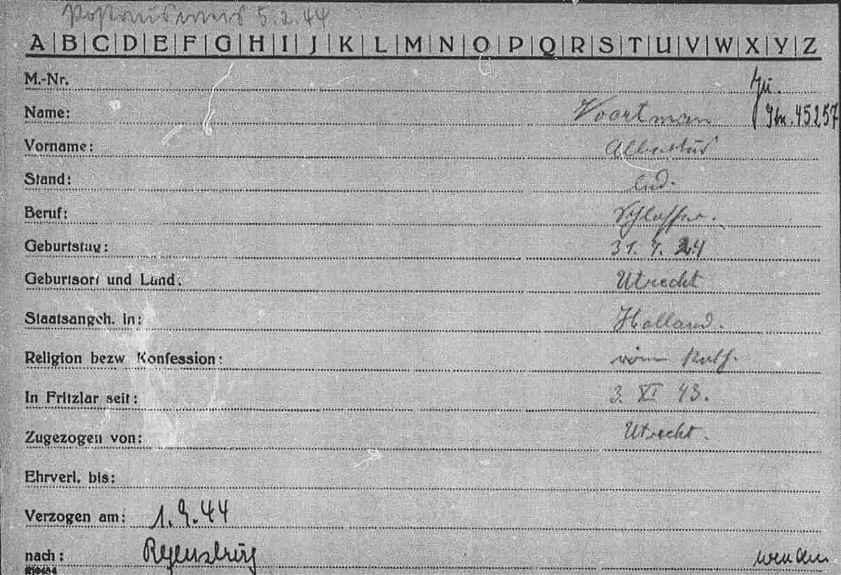 Postausweis 5.2.44
A|B|C|D|E|F|G|H|I|J|K|L|M|N|O|P|Q|R|S|T|U|V|W|X|Y|Z
M.-Nr.
Name: Voortman
Vorname: Albertus
Stand: led.
Beruf: Schlosser.
Geburtstag: 24
Geburtsort und Land: Utrecht
Staatsangeh. in: Holland.
Religion bezw Konfession: röm Kath.
In Fritzlar seit: 3. XI 43.
Zugezogen von: Utrecht.
Ehrverl. bis:
Verzogen am: 1.9.44
nach: Regensburg wenden